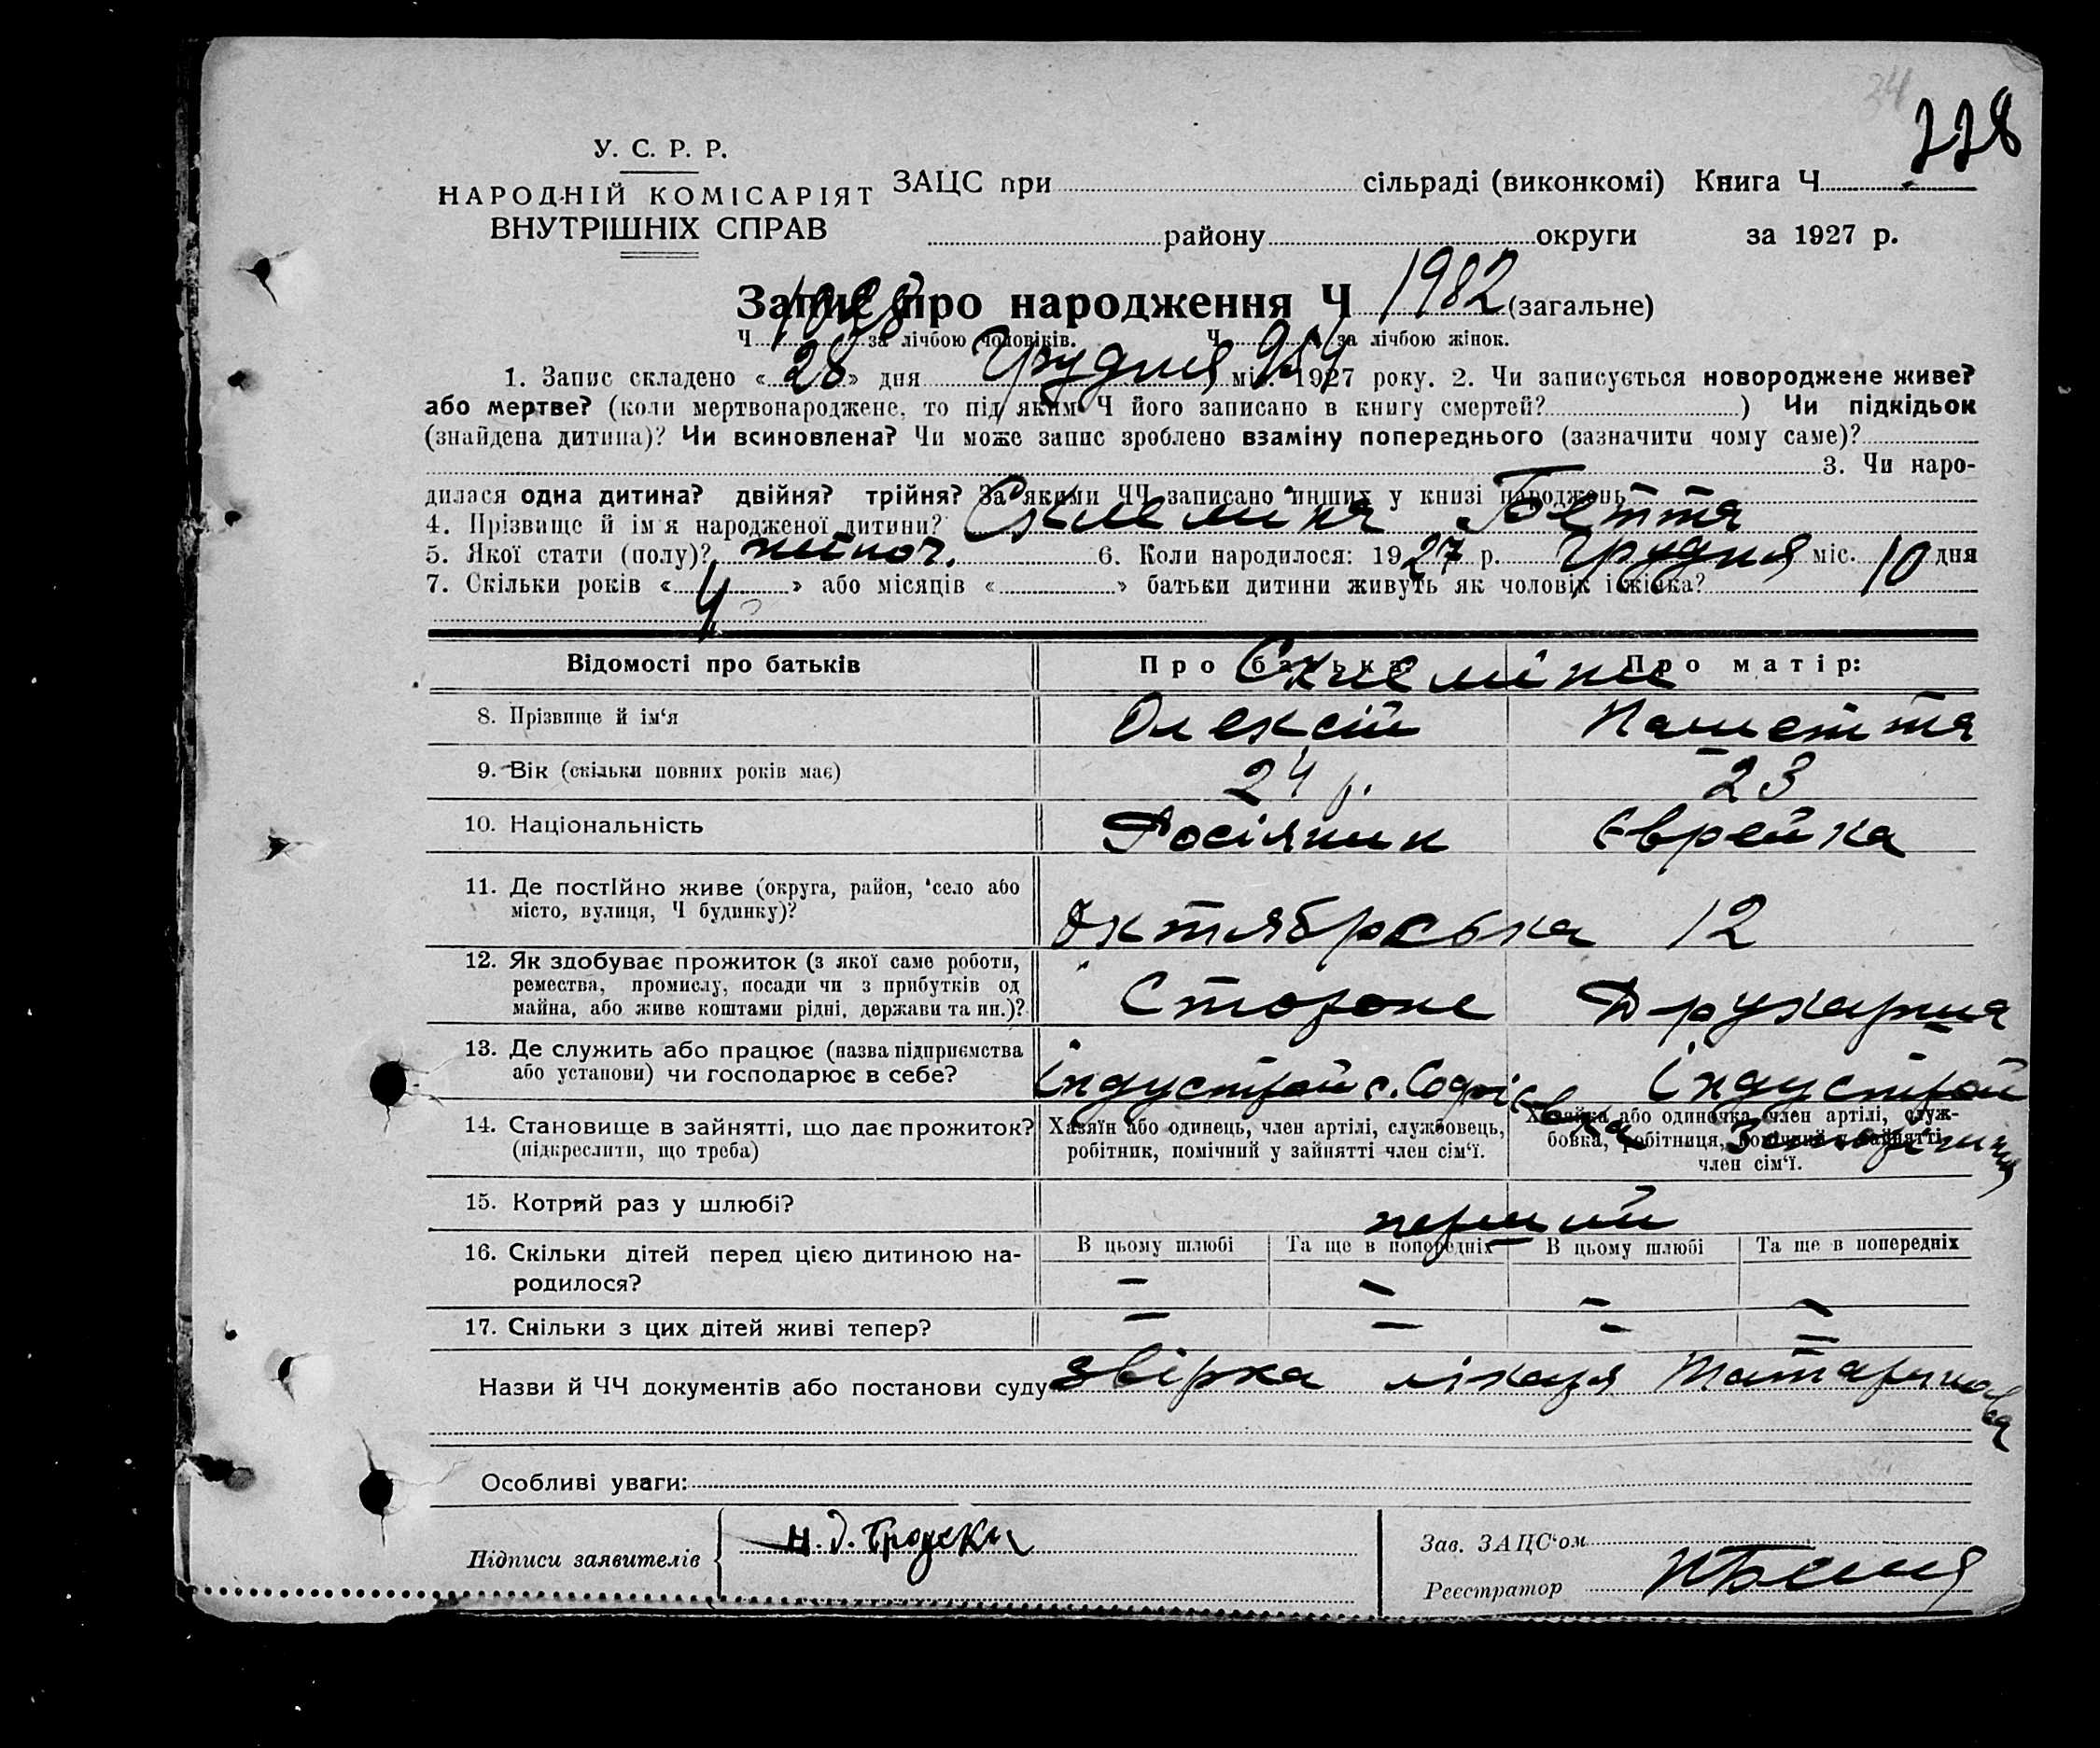 34
228
У. С. Р. Р.
НАРОДНІЙ КОМІСАРІЯТ
ВНУТРІШНІХ СПРАВ
ЗАЦС при сільраді (виконкомі) Книга Ч.
району округи за 1927 р.
Запис про народження Ч 1982 (загальне)
Ч. 1028 за лічбою чоловіків. Ч. 954 за лічбою жінок.
1. Запис складено « 28 » дня Грудня міс. 1927 року. 2. Чи записується новороджене живе?
або мертве? (коли мертвонароджене, то під яким Ч його записано в книгу смертей? ) Чи підкідьок
(знайдена дитина)? Чи всиновлена? Чи може запис зроблено взаміну попереднього (зазначити чому саме)?
3. Чи наро-
дилася одна дитина? двійня? трійня? За якими ЧЧ записано инших у книзі народжень
4. Прізвище й ім'я народженої дитини? Бетта
5. Якої стати (полу)? жіноч. 6. Коли народилося: 1927 р. Грудня міс. 10 дня
7. Скільки років « 4 » або місяців « » батьки дитини живуть як чоловік і жінка?
Відомості про батьків Про батька: Про матір:
8. Прізвище й ім'я Олексій
9. Вік (скільки повних років має) 24 р. 23
10. Національність Росіянин Єврейка
11. Де постійно живе (округа, район, село або
місто, вулиця, Ч будинку)?
Октябрська 12
12. Як здобуває прожиток (з якої саме роботи,
ремества, промислу, посади чи з прибутків од
майна, або живе коштами рідні, держави та ин.)?
Друкарниця
13. Де служить або працює (назва підприємства
або установи) чи господарює в себе?
Індустрой Індустрой
14. Становище в зайнятті, що дає прожиток?
(підкреслити, що треба)
Хазяїн або одинець, член артілі, службовець,
робітник, помічний у зайнятті член сім'ї.
Хазяйка або одиночка, член артілі, служ-
бовка, робітниця, помічний у зайнятті
член сім'ї.
15. Котрий раз у шлюбі? перший
16. Скільки дітей перед цією дитиною на-
родилося?
В цьому шлюбі Та ще в попередніх В цьому шлюбі Та ще в попередніх
– – – –
17. Скільки з цих дітей живі тепер? – – – –
Назви й ЧЧ документів або постанови суду звірка лікаря Татаринова
Особливі уваги:
Підписи заявителів
Зав. ЗАЦС'ом
Реєстратор